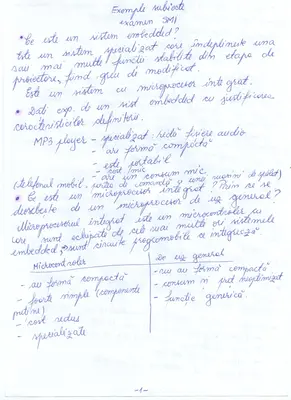 Exemple subiecte
examen SMI
* Ce este un sistem embedded?
Este un sistem specializat care îndeplinește una
sau mai multe funcții stabilite din etapa de
proiectare, fiind greu de modificat.
Este un sistem cu microprocesor integrat.
* Dați exp. de un sist embedded cu justificarea
caracteristicilor definitorii.
MP3 player - specializat: redă fișiere audio
- are formă compactă
- este portabil
- cost mic
- are un consum mic
(telefonul mobil, partea de comandă a unei mașini de spălat)
* Ce este un microprocesor integrat? Prin ce se
deosebește de un microprocesor de uz general?
Microprocesorul integrat este un microcontroler cu
care sunt echipate de cele mai multe ori sistemele
embedded, sunt circuite programabile ce integrează
Microcontroler
- au formă compactă
- foarte simple (componente
puține)
- cost redus
- specializate
De uz general
- nu au formă compactă
- consum și preț neoptimizat
- funcție generică
-1-